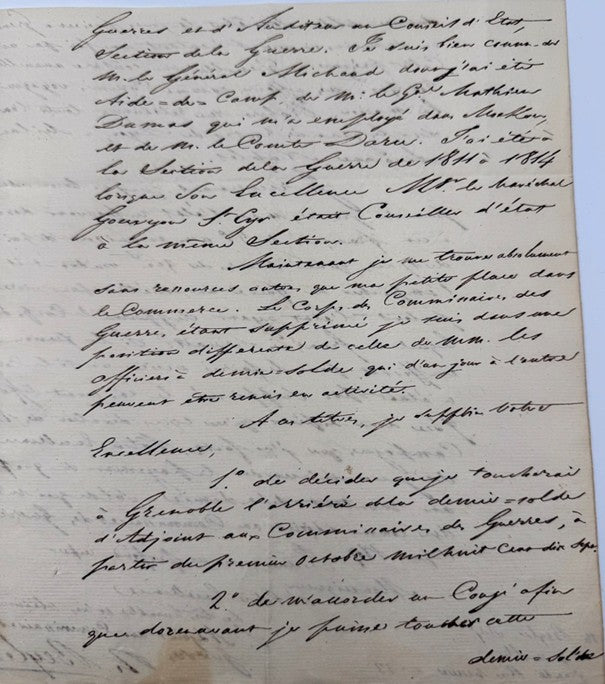 Guerres et d'Auditeur au Conseil d'Etat,
Section de la Guerre. Je suis bien connu de
M. le Général Michaud dont j'ai été
Aide-de-Camp, de M. le Gal Mathieu
Dumas qui m'a employé dans Moskou,
et de M. le Comte Daru. J'ai été à
la Section de la Guerre de 1811 à 1814
lorsque Son Excellence Mgr. le Maréchal
Gouvyon St Cyr était Conseiller d'état
à la même Section.
Maintenant je me trouve absolument
sans ressources autres que ma petite place dans
le Commerce. Le Corps des Commissaires des
Guerres étant supprimé je suis dans une
position différente de celle de MM. les
officiers à demie-solde qui d'un jour à l'autre
peuvent être remis en activité.
A ces titres, je supplie Votre
Excellence,
1º de décider que je toucherai
à Grenoble l'arriéré de la demie-solde
d'Adjoint aux Commissaires des Guerres, à
partir du premier octobre mil huit cent dix Sept.
2º de m'accorder un Congé afin
que dorenavant je puisse toucher cette
demie-solde